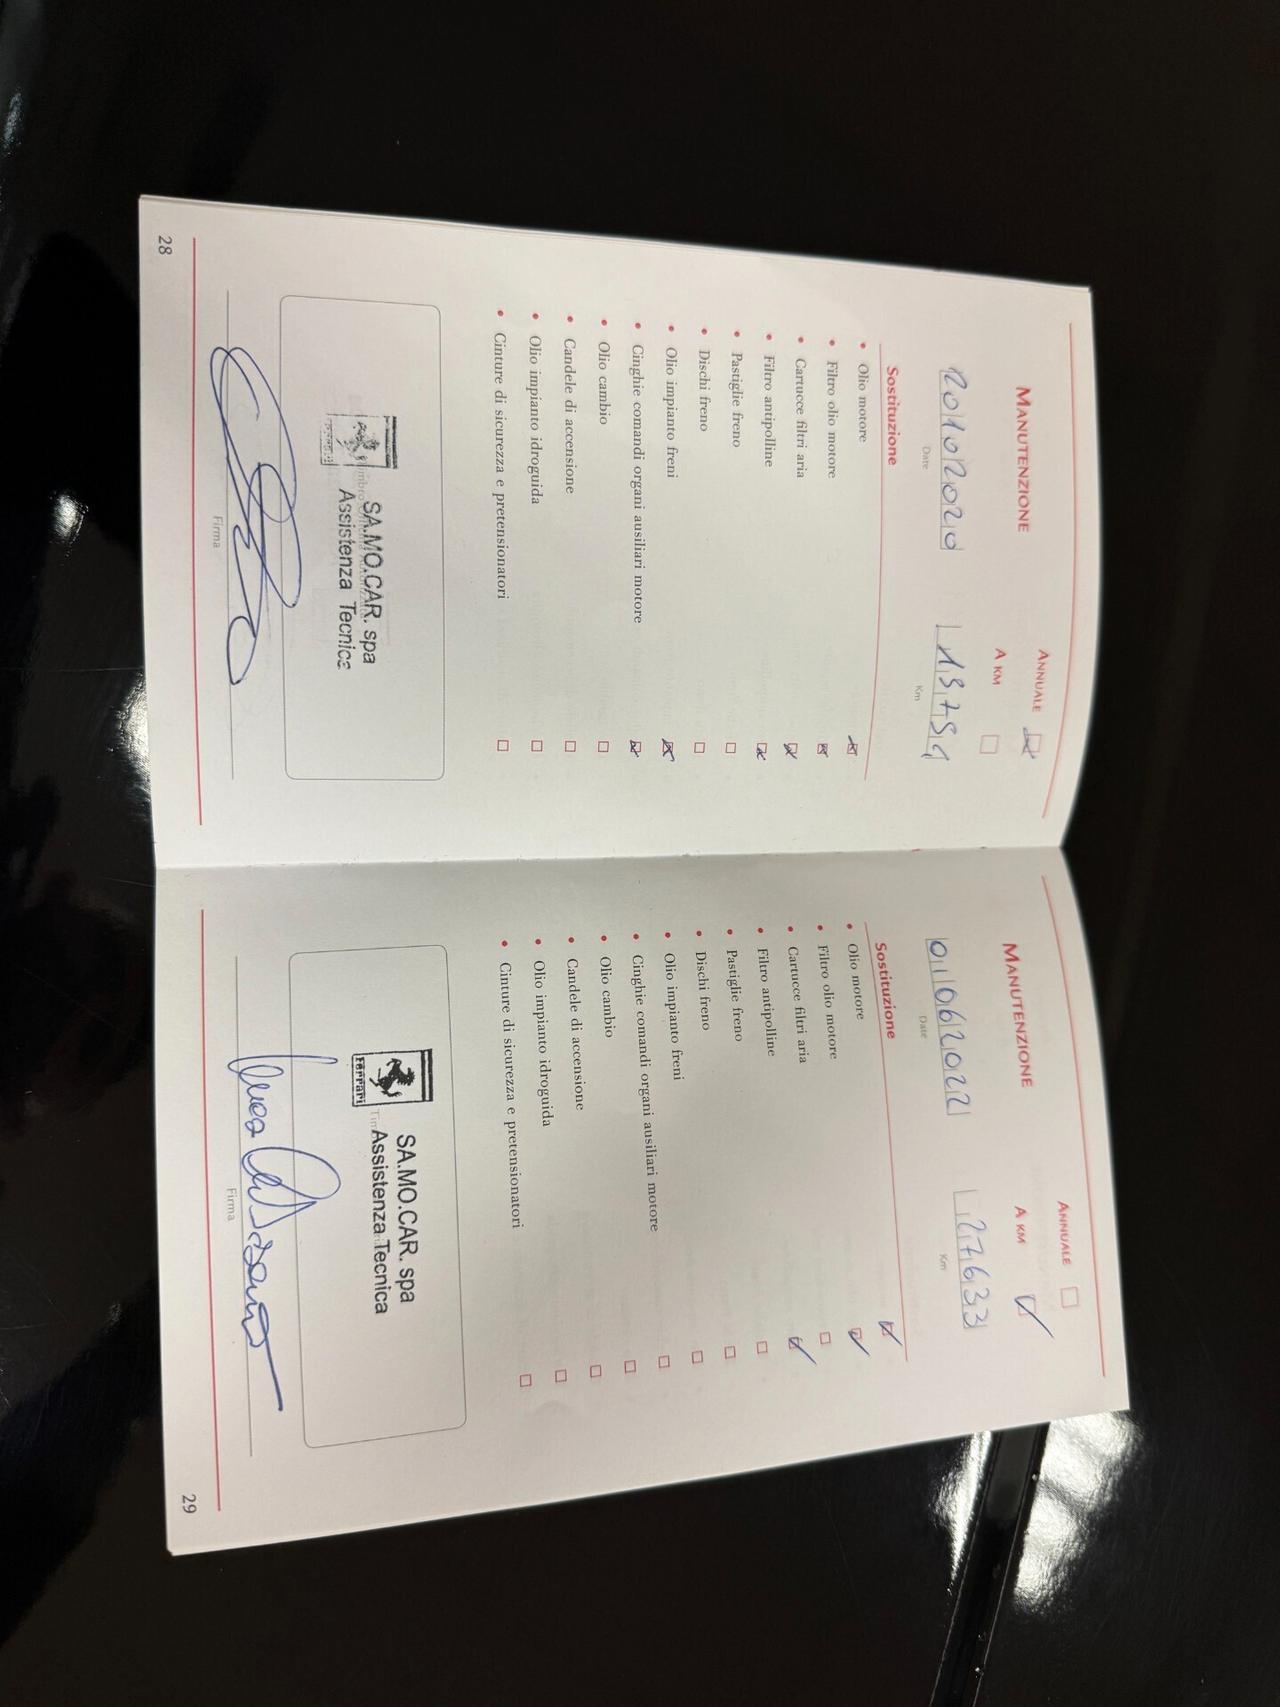 MANUTENZIONE
ANNUALE
A KM
20102020
Date
Km
Sostituzione
• Olio motore
• Filtro olio motore
• Cartucce filtri aria
• Filtro antipolline
• Pastiglie freno
• Dischi freno
• Olio impianto freni
• Cinghie comandi organi ausiliari motore
• Olio cambio
• Candele di accensione
• Olio impianto idroguida
• Cinture di sicurezza e pretensionatori
SA.MO.CAR. spa
Assistenza Tecnica
Firma
28
MANUTENZIONE
ANNUALE
A KM
01062022
Date
27633
Km
Sostituzione
• Olio motore
• Filtro olio motore
• Cartucce filtri aria
• Filtro antipolline
• Pastiglie freno
• Dischi freno
• Olio impianto freni
• Cinghie comandi organi ausiliari motore
• Olio cambio
• Candele di accensione
• Olio impianto idroguida
• Cinture di sicurezza e pretensionatori
SA.MO.CAR. spa
Assistenza Tecnica
Ferrari
Firma
29